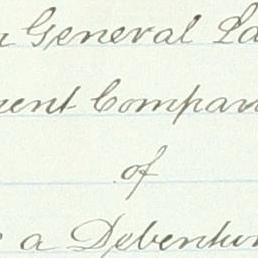 General La
ent Compan
of
a Debentur